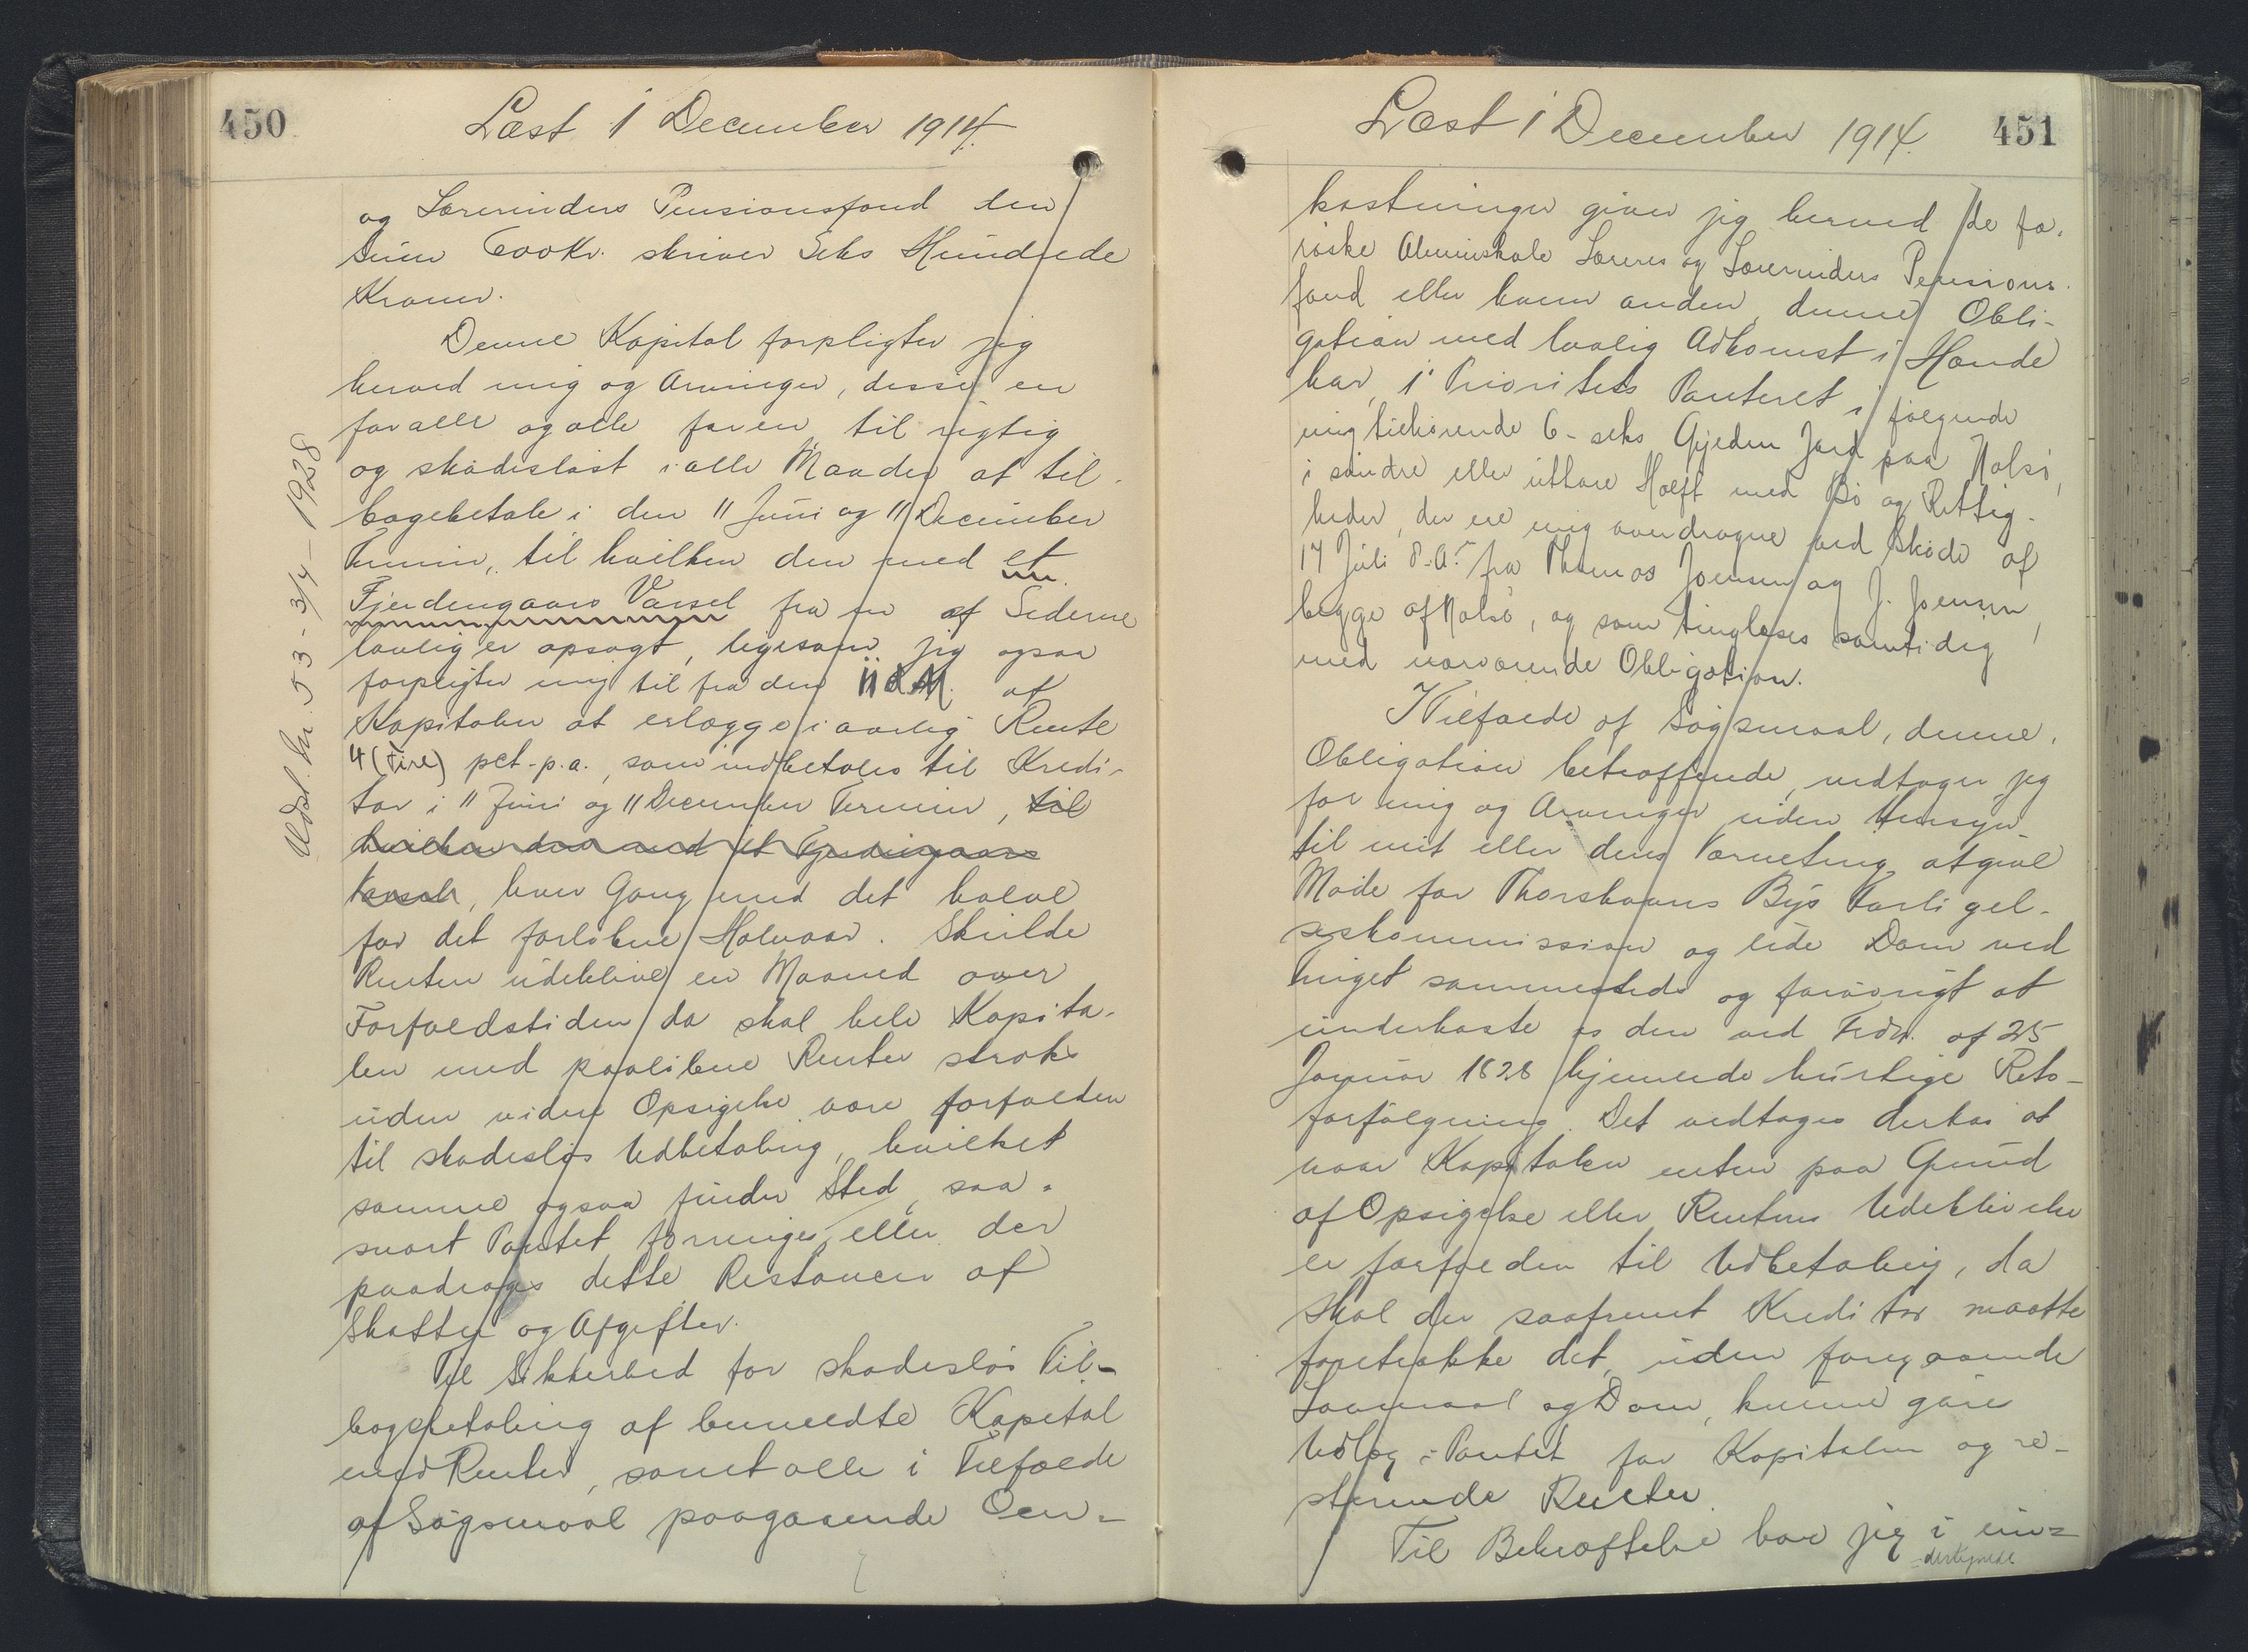 450
Læst 1 December 1914.
og Lærerinders Pensionsfond den
Sum 600 Kr. skriver Seks Hundrede
Kroner.
Denne Kapital forpligter jeg
herved mig og Arvinger, disse en
for alle og alle for en, til rigtig
og skadesløst i alle Maader at til-
bagebetale i den 11 Juni og 11 December
Termin, til hvilken den med et
Fjerdingaars Varsel fra en af Siderne
lovlig er opsagt, ligesom jeg ogsaa
forpligter mig til fra den 11 d. M. af
Kapitalen at erlægge i aarlig Rente
4 (fire) pct. p.a., som indbetales til Kredi-
tor i 11 Juni og 11 December Termin, til
hvilken daa med et Fjerdingaars
Varsel, hver Gang med det halve
for det forløbne Halvaar. Skulde
Renten udeblive en Maaned over
Forfaldstiden da skal hele Kapita-
len med paaløbne Renter straks
uden videre Opsigelse være forfalden
til skadesløs Udbetaling, hvilket
samme ogsaa finder Sted, saa-
snart Pantet forringes, eller der
paadrages dette Restancer af
Skatter og Afgifter.
Til Sikkerhed for skadesløs Til-
bagebetaling af bemeldte Kapital
med Renter, samt alle i Tilfælde
af Søgsmaal paagaaende Om-
Udsl. nr. 53 - 3/4 - 1928
Læst 1 December 1914.
451
kostninger giver jeg herved de fæ-
røiske Almueskole Læreres og Lærerinders Pensions-
fond eller hvem anden, denne Obli-
gation med lovlig Adkomst i Hænde
har, 1' Prioritets Panteret i følgende
mig tilhørende 6 - seks Gylden Jord paa Nolsø,
i søndre eller uttare Hælft med Bø og Rettig-
heder, der ere mig overdragne ved Skøde af
17 Juli d. A. fra Thomas Joensen og J. Joensen,
begge af Nolsø, og som tinglæses samtidig
med nærværende Obligation.
I Tilfælde af Søgsmaal, denne
Obligation betræffende, vedtager jeg
for mig og Arvinger uden Hensyn
til mit eller deres Værneting at give
Møde for Thorshavns Bys Forligel-
seskommission og lide Dom ved
Tinget sammesteds og forøvrigt at
underkaste os den ved Frdn. af 25
Januar 1828 hjemlede hurtige Rets-
forfølgning. Det vedtages derhos at
naar Kapitalen enten paa Grund
af Opsigelse eller Rentens Udeblivelse
er forfalden til Udbetaling, da
skal der saafremt Kreditor maatte
foretrække det, uden foregaaende
Lovmaal og Dom, kunne gøres
Udlæg i Pantet for Kapitalen og re-
sterende Renter.
Til Bekræftelse har jeg i un-
dertegnede